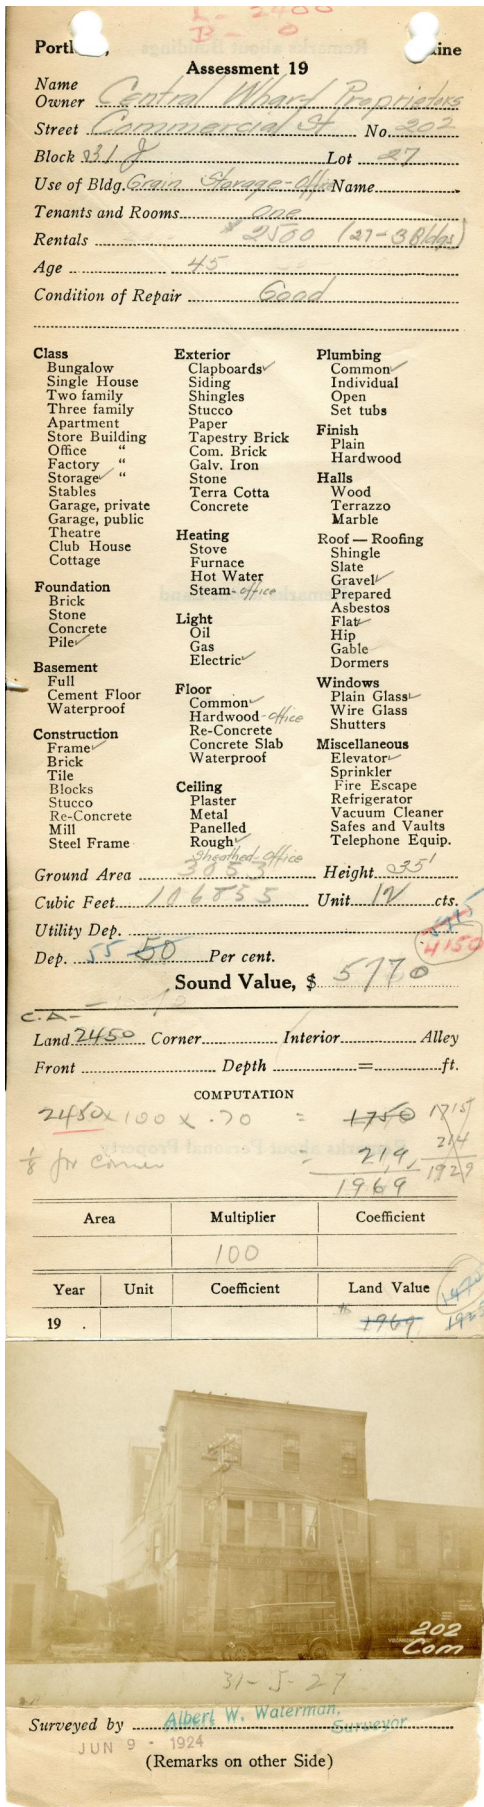 L- 2400
B- 0
Portl , ine
Assessment 19
Name
Owner Central Wharf Proprietors
Street Commercial St No. 202
Block 31 J Lot 27
Use of Bldg. Grain Storage-Office Name
Tenants and Rooms One
Rentals $2500 (27-3 Bldgs)
Age 45
Condition of Repair Good
Class
Bungalow
Single House
Two family
Three family
Apartment
Store Building
Office "
Factory "
Storage ✓ "
Stables
Garage, private
Garage, public
Theatre
Club House
Cottage
Foundation
Brick
Stone
Concrete
Pile ✓
Basement
Full
Cement Floor
Waterproof
Construction
Frame ✓
Brick
Tile
Blocks
Stucco
Re-Concrete
Mill
Steel Frame
Exterior
Clapboards ✓
Siding
Shingles
Stucco
Paper
Tapestry Brick
Com. Brick
Galv. Iron
Stone
Terra Cotta
Concrete
Heating
Stove
Furnace
Hot Water
Steam - office
Light
Oil
Gas
Electric ✓
Floor
Common ✓
Hardwood - office
Re-Concrete
Concrete Slab
Waterproof
Ceiling
Plaster
Metal
Panelled
Rough ✓
Sheathed-Office
Plumbing
Common ✓
Individual
Open
Set tubs
Finish
Plain
Hardwood
Halls
Wood
Terrazzo
Marble
Roof — Roofing
Shingle
Slate
Gravel ✓
Prepared
Asbestos
Flat ✓
Hip
Gable
Dormers
Windows
Plain Glass ✓
Wire Glass
Shutters
Miscellaneous
Elevator ✓
Sprinkler
Fire Escape
Refrigerator
Vacuum Cleaner
Safes and Vaults
Telephone Equip.
Ground Area 3053 Height 35'
Cubic Feet 106855 Unit 12 cts.
Utility Dep.
4150
Dep. 55 50 Per cent.
Sound Value, $ 5770
C.A-
Land 2450 Corner Interior Alley
Front Depth = ft.
COMPUTATION
2450 x 100 x .70 = 1750 1715
1/8 for Corner = 219 214
1969 1929
Area Multiplier Coefficient
100
Year Unit Coefficient Land Value
19 . $ 1969
202
Com
31-J-27
Surveyed by Albert W. Waterman, Surveyor
JUN 9 - 1924
(Remarks on other Side)